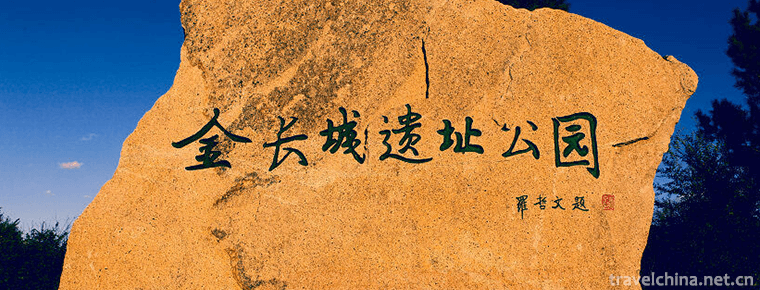 金长城遗址公园
羅哲文题
travelchina.net.cn